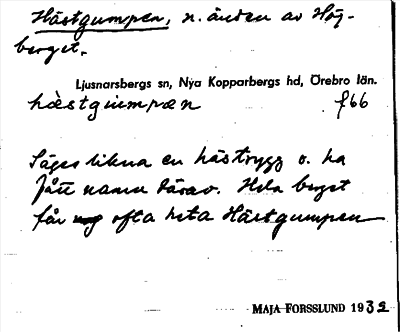 Hästgumpen, n. änden av Hög-
berget.
Ljusnarsbergs sn, Nya Kopparbergs hd, Örebro län.
hæstgiumpæn f66
Säges likna en hästrygg o. ha
fått namn därav. Hela berget
får ofta heta Hästgumpen
MAJA FORSSLUND 1932